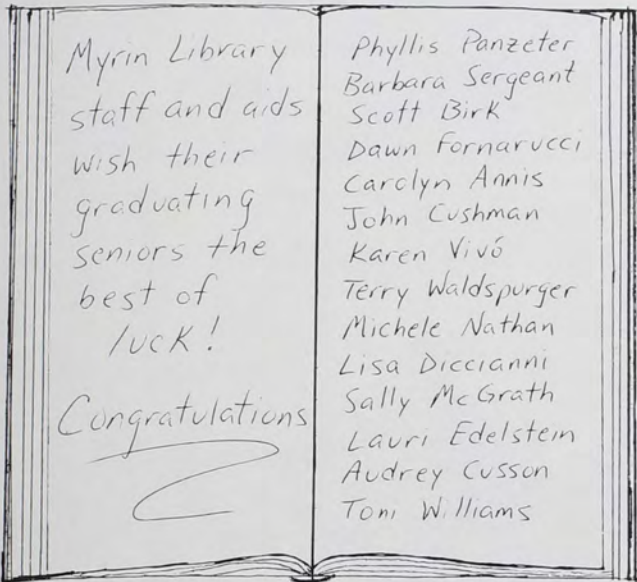 Myrin Library
staff and aids
wish their
graduating
seniors the
best of
luck!
Congratulations
Phyllis Panzeter
Barbara Sergeant
Scott Birk
Dawn Fornarucci
Carolyn Annis
John Cushman
Karen Vivó
Terry Waldspurger
Michele Nathan
Lisa Diccianni
Sally McGrath
Lauri Edelstein
Audrey Cusson
Toni Williams